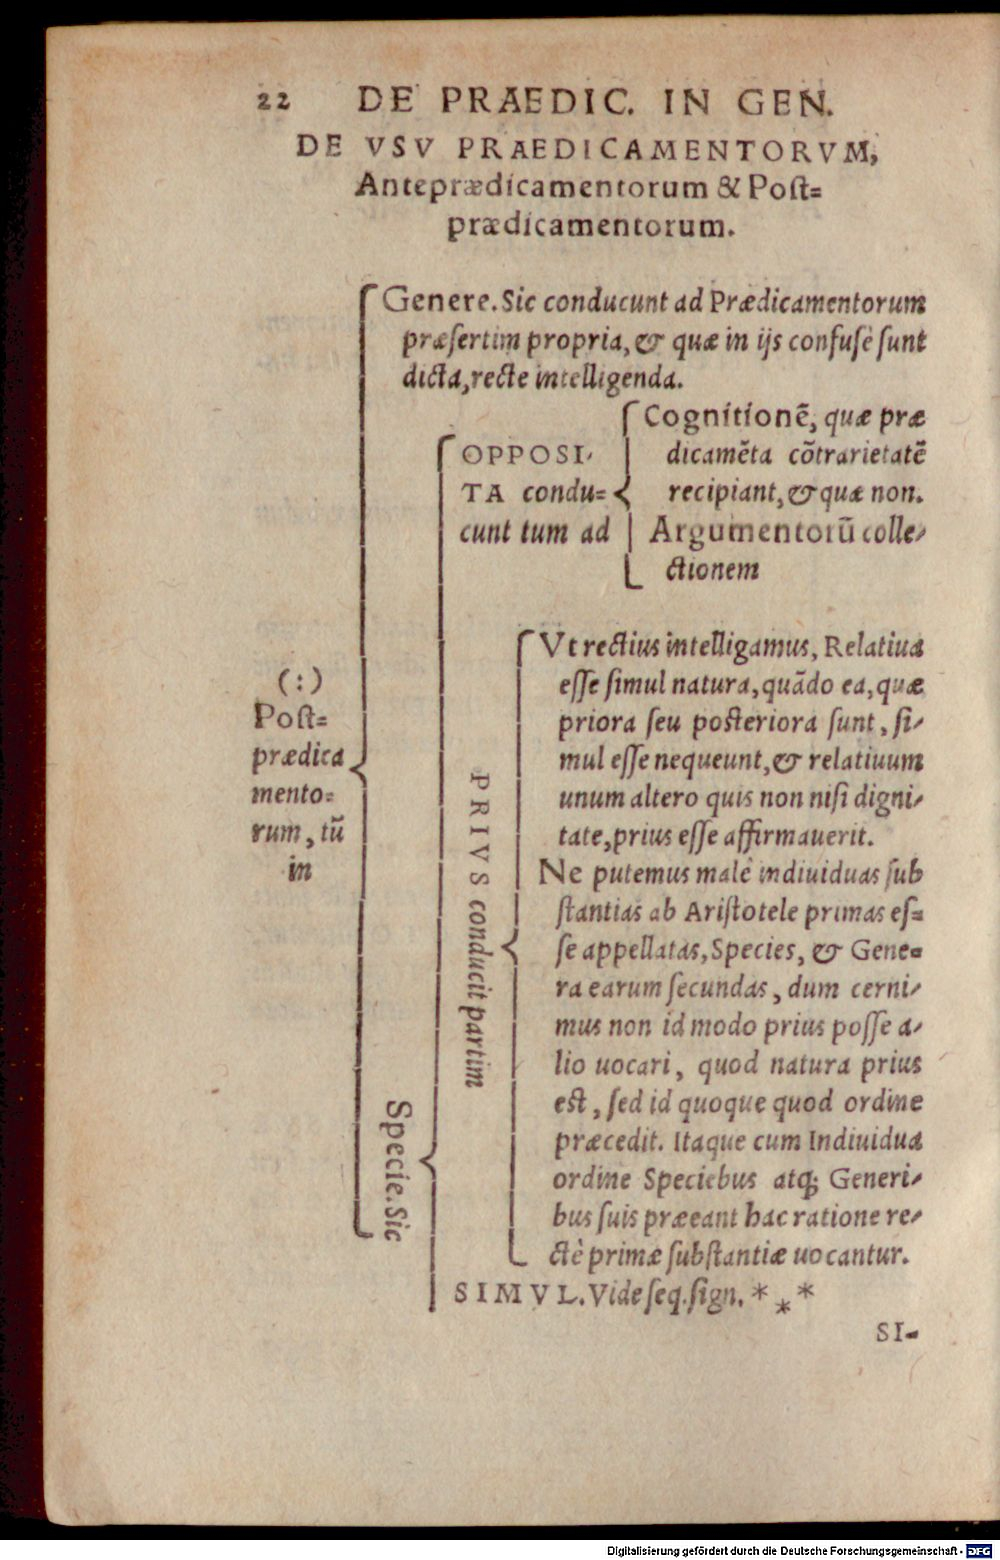 22 DE PRAEDIC. IN GEN.
DE VSV PRAEDICAMENTORVM,
Anteprædicamentorum & Poſt=
prædicamentorum.
(:)
Poſt=
prædica
mento=
rum, tū
in
Genere. Sic conducunt ad Prædicamentorum
præſertim propria, & quæ in ijs confuſè ſunt
dicta, recte intelligenda.
Specie. Sic
OPPOSI-
TA condu=
cunt tum ad
Cognitionē, quæ præ
dicamēta cōtrarietatē
recipiant, & quæ non.
Argumentorū colle-
ctionem
PRIVS conducit partim
Vt rectius intelligamus, Relatiua
eſſe ſimul natura, quādo ea, quæ
priora ſeu poſteriora ſunt, ſi-
mul eſſe nequeunt, & relatiuum
unum altero quis non niſi digni-
tate, prius eſſe affirmauerit.
Ne putemus malè indiuiduas ſub
ſtantias ab Ariſtotele primas eſ=
ſe appellatas, Species, & Gene=
ra earum ſecundas, dum cerni-
mus non id modo prius poſſe a-
lio uocari, quod natura prius
eſt, ſed id quoque quod ordine
præcedit. Itaque cum Indiuidua
ordine Speciebus atq; Generi-
bus ſuis præeant hac ratione re-
ctè primæ ſubſtantiæ uocantur.
SIMVL. Vide ſeq. ſign. * * *
SI-
Digitalisierung gefördert durch die Deutsche Forschungsgemeinschaft - DFG